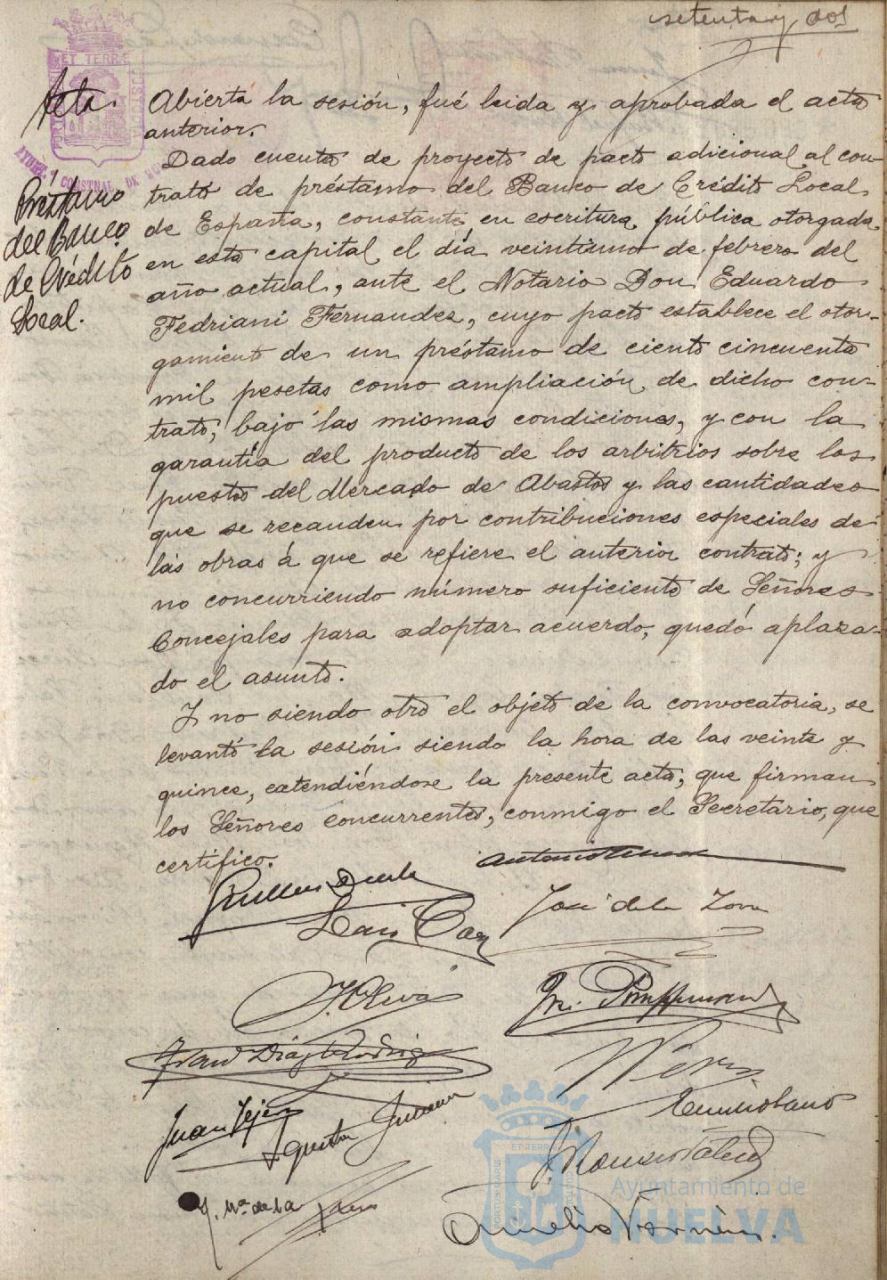 setenta y dos
Acta.
Abierta la sesión, fué leida y aprobada el acta
anterior.
Préstamo
del Banco
de Crédito
Local.
Dado cuenta de proyecto de pacto adicional al con-
trato de préstamo del Banco de Crédito Local
de España, constante en escritura pública otorgada
en esta capital el día veintiuno de febrero del
año actual, ante el Notario Don Eduardo
Fedriani Fernandez, cuyo pacto establece el otor-
gamiento de un préstamo de ciento cincuenta
mil pesetas como ampliación de dicho con-
trato, bajo las mismas condiciones, y con la
garantía del producto de los arbitrios sobre los
puestos del Mercado de Abastos y las cantidades
que se recauden por contribuciones especiales de
las obras á que se refiere el anterior contrato; y
no concurriendo número suficiente de Señores
Concejales para adoptar acuerdo, quedó aplaza-
do el asunto.
Y no siendo otro el objeto de la convocatoria, se
levantó la sesión siendo la hora de las veinte y
quince, extendiéndose la presente acta, que firman
los Señores concurrentes, conmigo el Secretario, que
certifico.
Antonio
José de la
J. Oliva
Juan Tejero
J. Mª de la
Ayuntamiento de
HUELVA